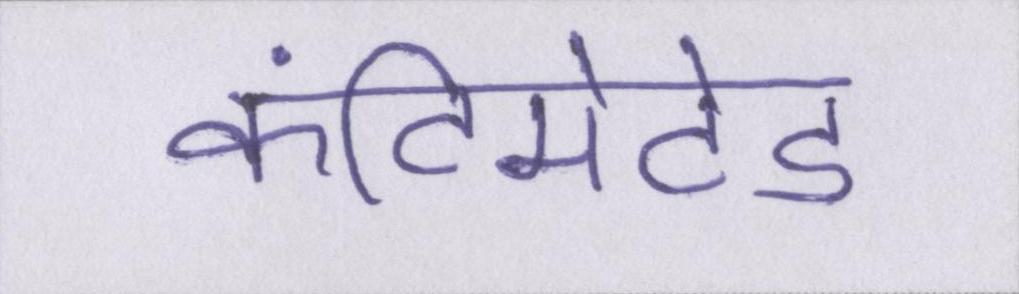 कंटिमेटेड